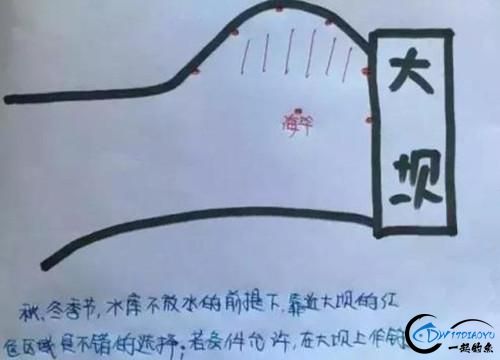 大
坝
海竿
秋、冬季节,水库不放水的前提下,靠近大坝的红
色区域是不错的选择。若条件允许,在大坝上作钓
W17DIAOYU
一起钓鱼